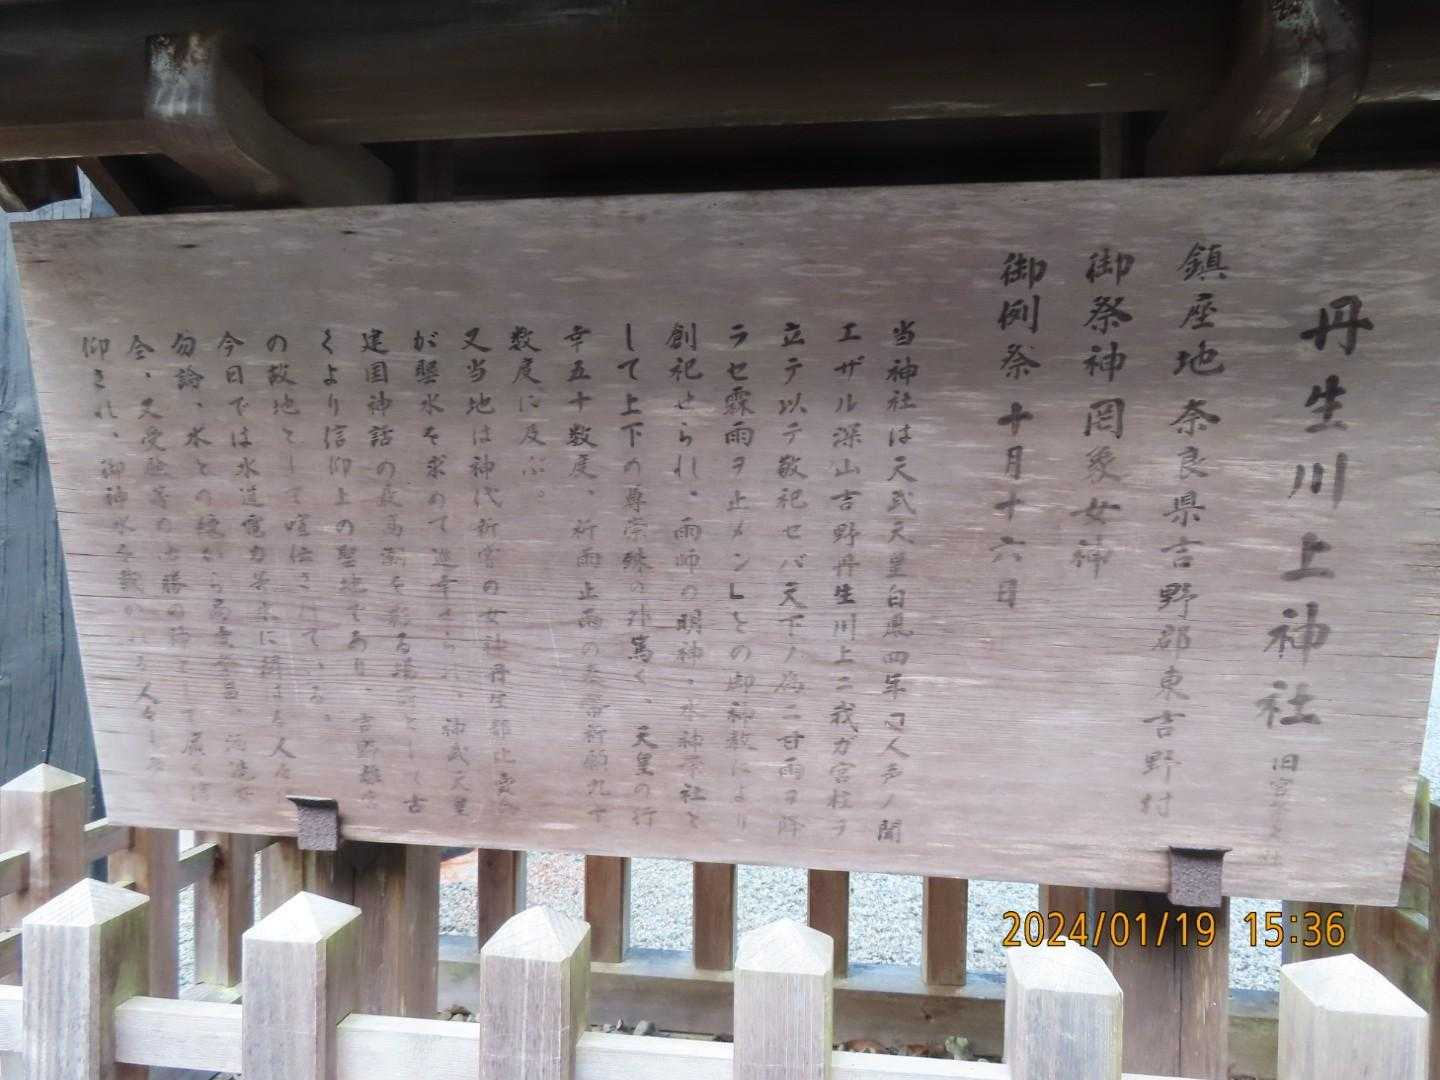 丹生川上神社 旧官幣大社
鎮座地 奈良県吉野郡東吉野村
御祭神 罔象女神
御例祭 十月十六日
当神社は天武天皇白鳳四年「人声ノ聞
エザル深山吉野丹生川上ニ我ガ宮柱ヲ
立テ以テ敬祀セバ天下ノ為ニ甘雨ヲ降
ラセ霖雨ヲ止メン」との御神教により
創祀せられ、雨師の明神、水神宗社と
して上下の尊崇殊の外篤く、天皇の行
幸五十数度、祈雨止雨の奉幣祈願九十
数度に及ぶ。
又当地は神代斎宮の女社丹生都比
が聖水を求めて巡幸せられ、神武天皇
建国神話の最高潮を彩る場所として古
くより信仰上の聖地であり、吉野離宮
の故地として喧伝されている。
今日では水道電力等水に携はる人々
勿論、水との縁から
会、又受験等の必勝の神として
仰され、御神水を戴かれる人々も